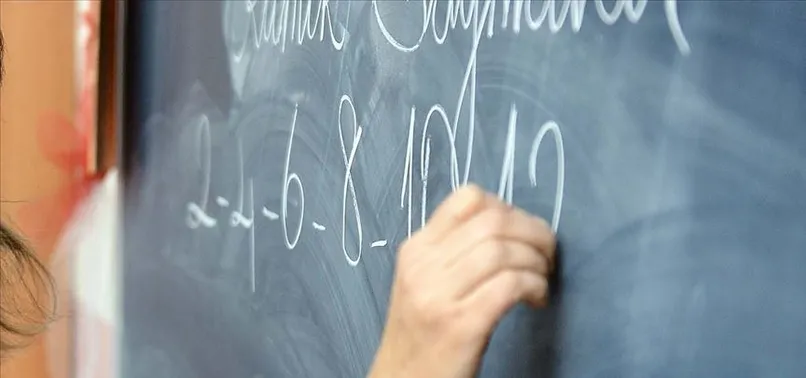 Ritmik Saymalar
2-4-6-8-10 12